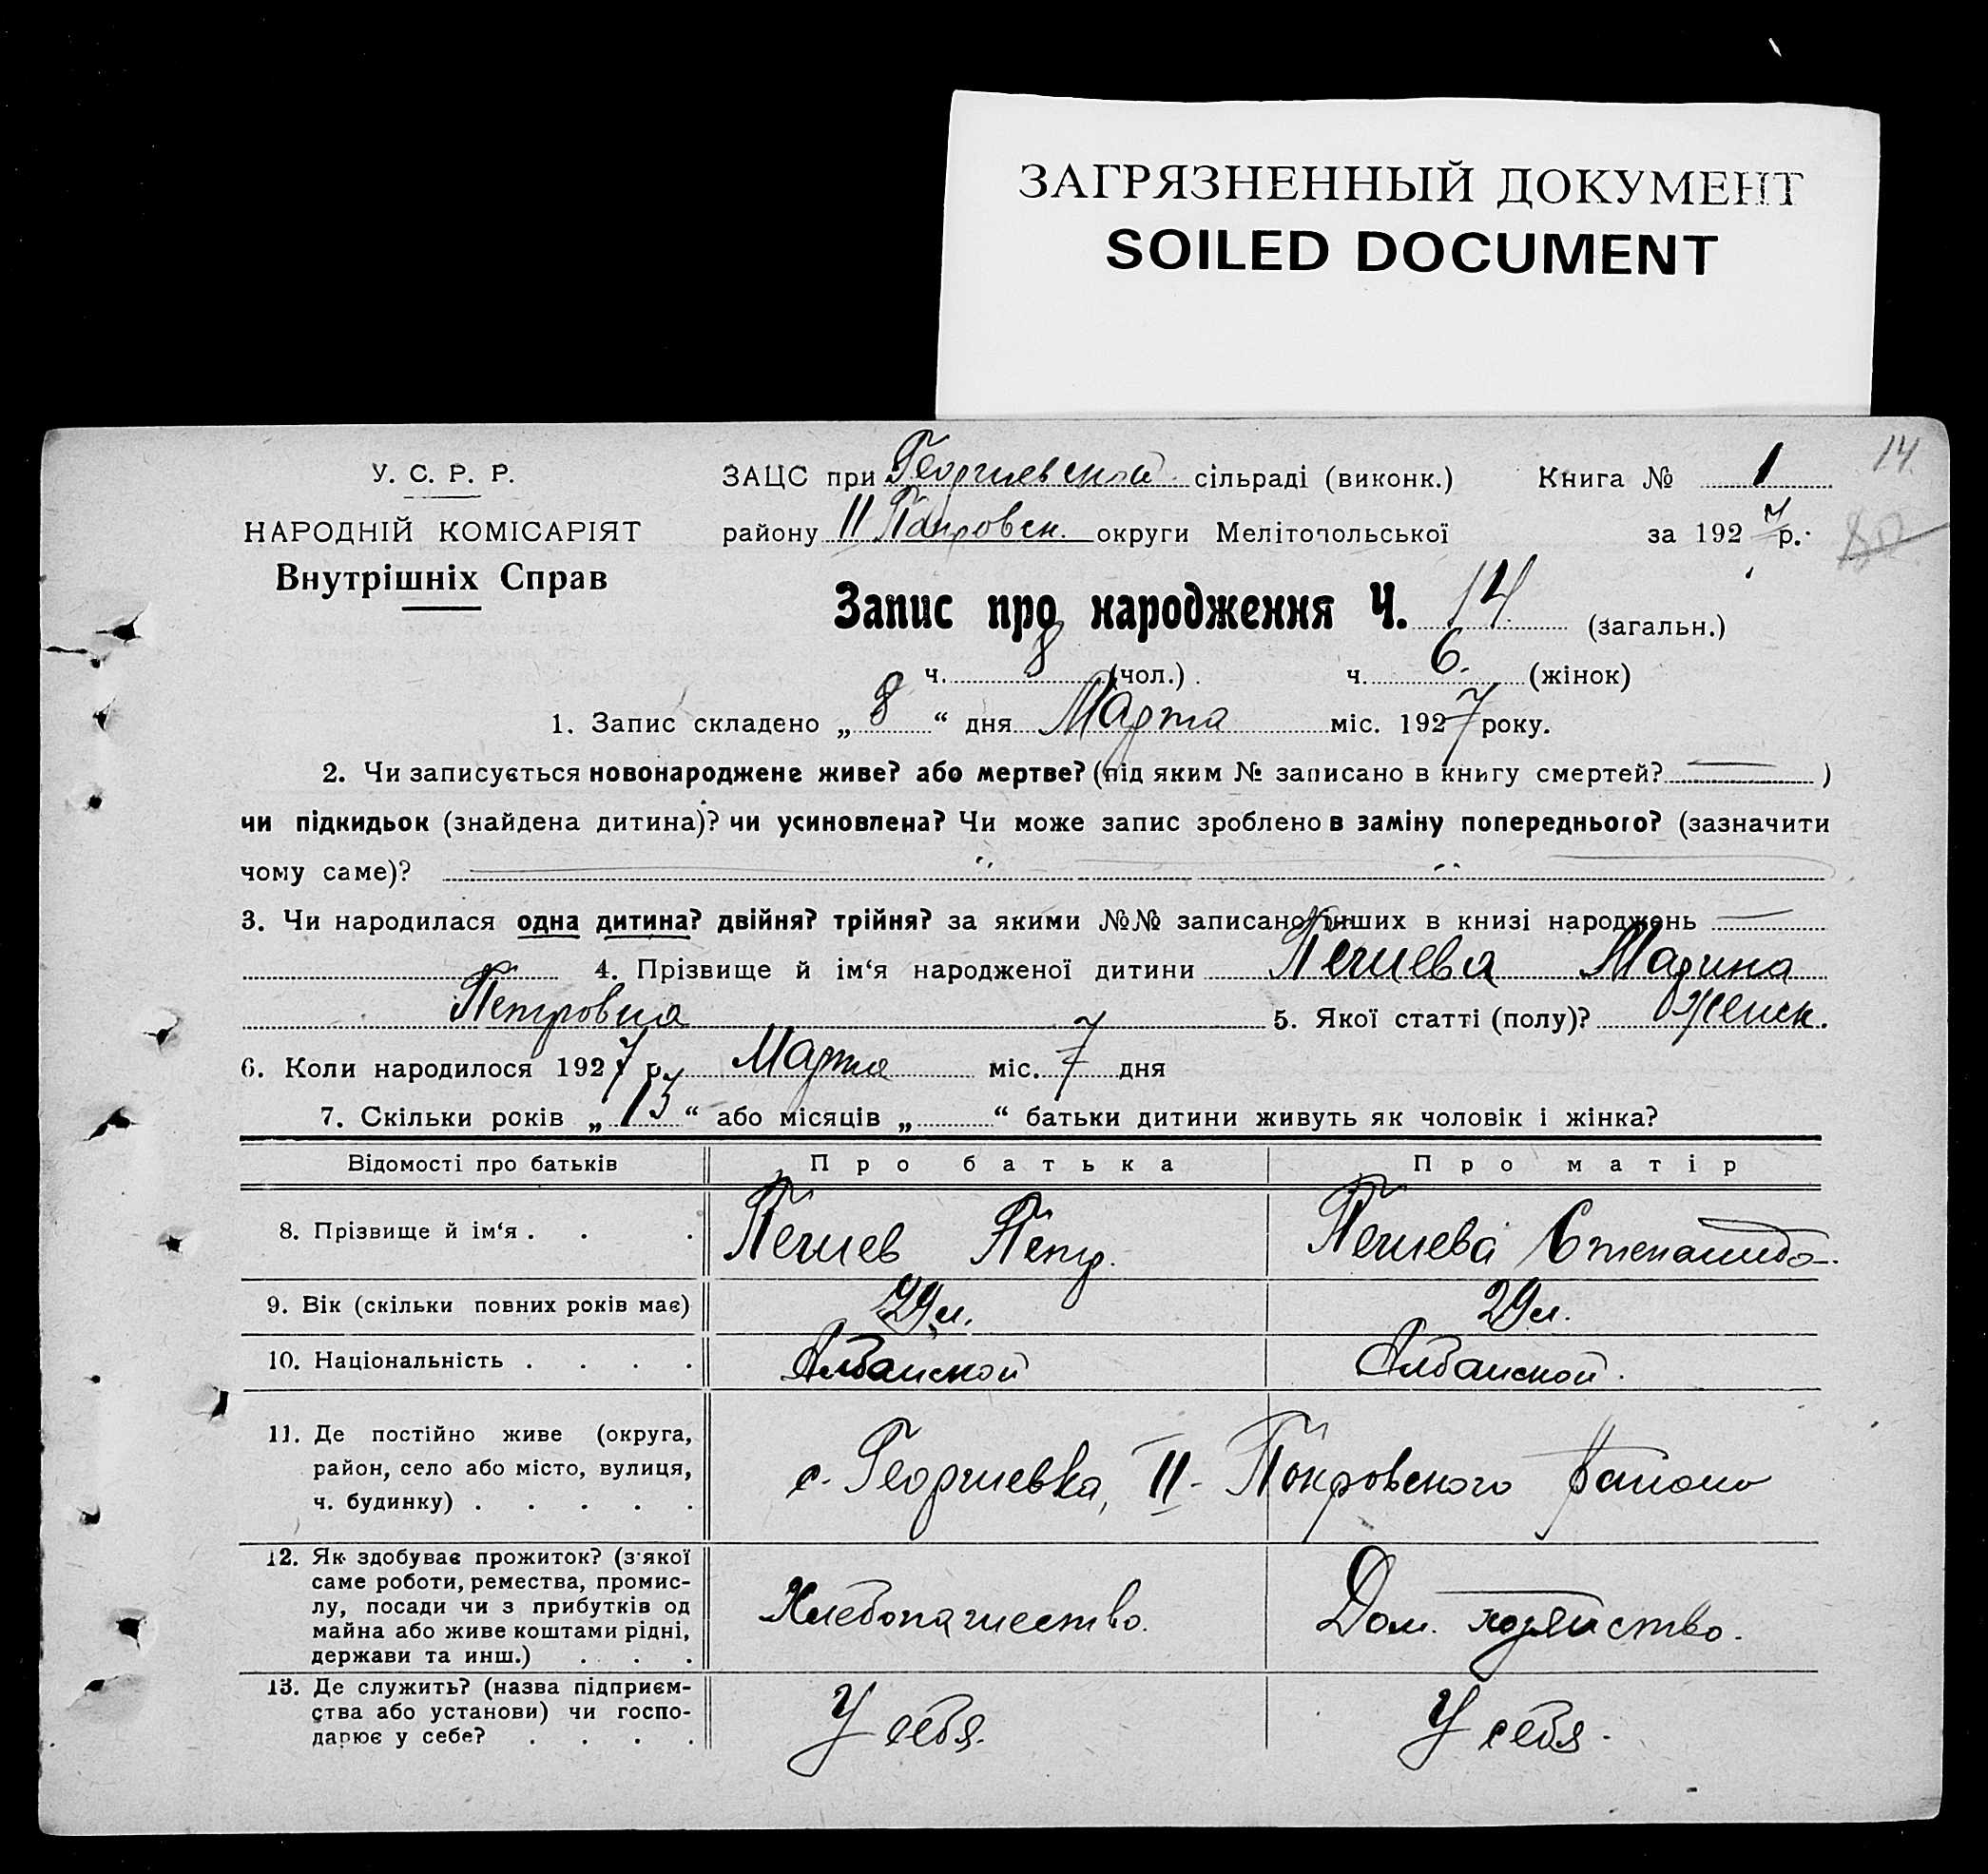 ЗАГРЯЗНЕННЫЙ ДОКУМЕНТ
SOILED DOCUMENT
14.
У. С. Р. Р.
ЗАЦС при Георгиевской сільраді (виконк.) Книга № 1
НАРОДНІЙ КОМІСАРІЯТ
району II Покровск. округи Мелітопольської за 1927 р.
Внутрішніх Справ
Запис про народження Ч. 14. (загальн.)
ч. 8 (чол.) ч. 6. (жінок)
1. Запис складено „ 8 “ дня Марта міс. 1927 року.
2. Чи записується новонароджене живе? або мертве? (під яким № записано в книгу смертей? — )
чи підкидьок (знайдена дитина)? чи усиновлена? Чи може запис зроблено в заміну попереднього? (зазначити
чому саме)?
3. Чи народилася одна дитина? двійня? трійня? за якими №№ записано інших в книзі народжень —
4. Прізвище й ім‘я народженої дитини Печиева Марина
Петровна 5. Якої статті (полу)? Женск.
6. Коли народилося 1927 р. Марта міс. 7 дня
7. Скільки років „ 13 “ або місяців „ “ батьки дитини живуть як чоловік і жінка?
Відомості про батьків Про батька Про матір
8. Прізвище й ім‘я . . . Печиев Петр. Печиева Степанида.
9. Вік (скільки повних років має) 29 л. 29 л.
10. Національність . . . . Албанской Албанской.
11. Де постійно живе (округа,
район, село або місто, вулиця,
ч. будинку) . . . . .
с. Георгиевка, II - Покровского района
12. Як здобуває прожиток? (з якої
саме роботи, ремества, промис-
лу, посади чи з прибутків од
майна або живе коштами рідні,
держави та инш.) . . .
Хлебопашество. Дом. хозяйство.
13. Де служить? (назва підприєм-
ства або установи) чи госпо-
дарює у себе? . . . .
У себя. У себя.